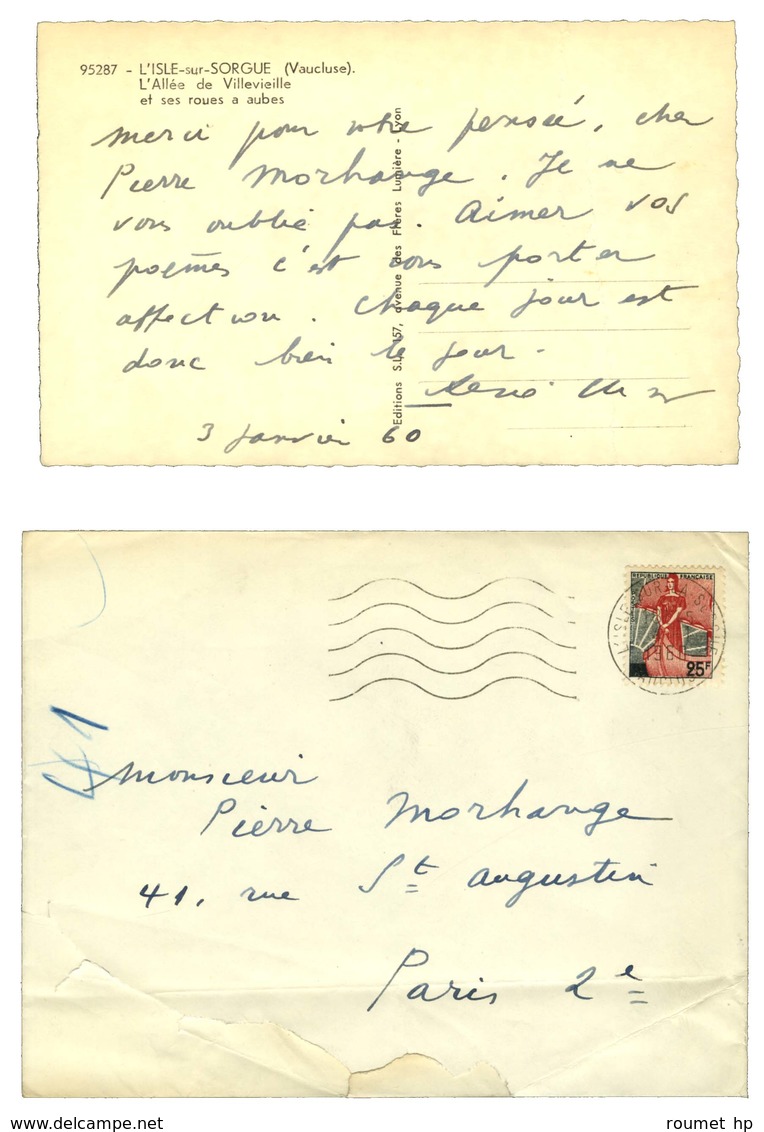 95287 - L'ISLE-sur-SORGUE (Vaucluse).
L'Allée de Villevieille
et ses roues a aubes
merci pour votre pensée, cher
Pierre Morhange. Je ne
vous oublie pas. Aimer vos
poèmes c'est vous porter
affection. Chaque jour est
donc bien le jour.
René Char
3 Janvier 60
Editions S.L. 157, avenue des Frères Lumière - Lyon
REPUBLIQUE FRANÇAISE
25F
L'ISLE SUR LA SORGUE
1960
VAUCLUSE
Monsieur
Pierre Morhange
41, rue St Augustin
Paris 2e
www.delcampe.net
roumet hp